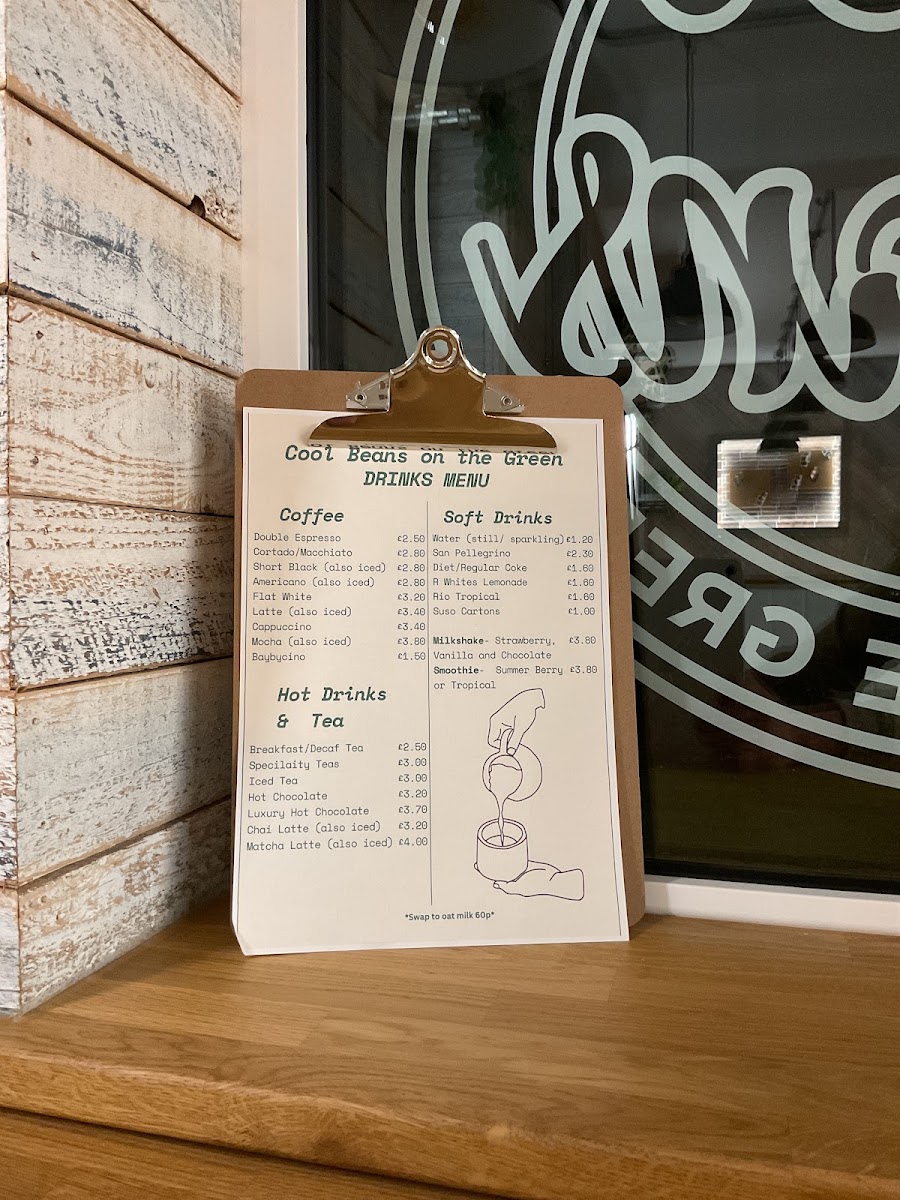 Cool Beans on the Green
DRINKS MENU
Coffee
Double Espresso £2.50
Cortado/Macchiato £2.80
Short Black (also iced) £2.80
Americano (also iced) £2.80
Flat White £3.20
Latte (also iced) £3.40
Cappuccino £3.40
Mocha (also iced) £3.80
Baybycino £1.50
Hot Drinks
& Tea
Breakfast/Decaf Tea £2.50
Specilaity Teas £3.00
Iced Tea £3.00
Hot Chocolate £3.20
Luxury Hot Chocolate £3.70
Chai Latte (also iced) £3.20
Matcha Latte (also iced) £4.00
Soft Drinks
Water (still/ sparkling) £1.20
San Pellegrino £2.30
Diet/Regular Coke £1.60
R Whites Lemonade £1.60
Rio Tropical £1.60
Suso Cartons £1.00
Milkshake- Strawberry, £3.80
Vanilla and Chocolate
Smoothie- Summer Berry £3.80
or Tropical
*Swap to oat milk 60p*
GRE